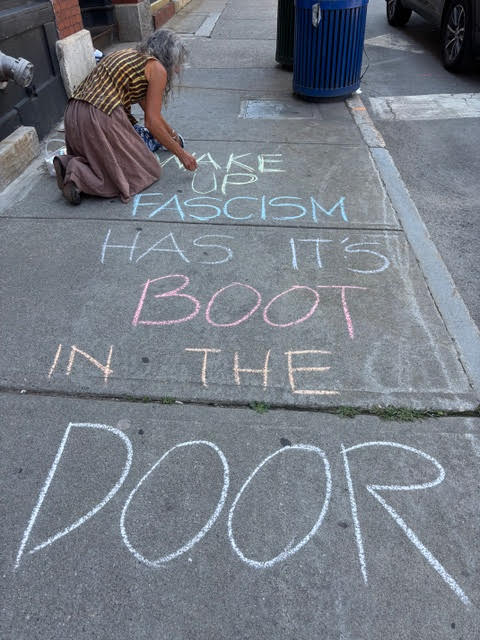 WAKE
UP
FASCISM
HAS IT'S
BOOT
IN THE
DOOR